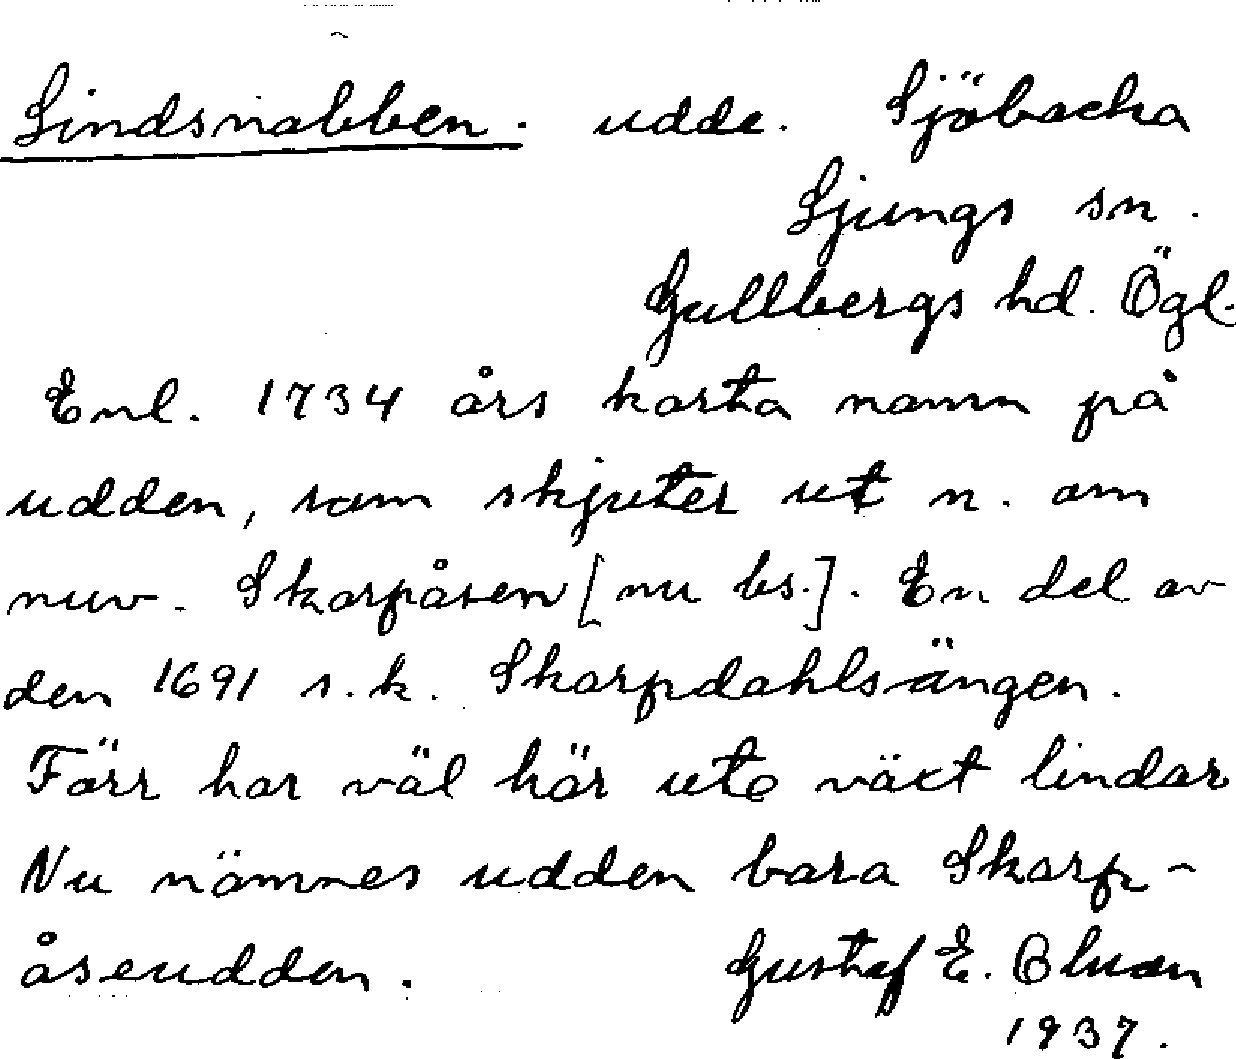 Lindsnabben. udde. Sjöbacka
Ljungs sn.
Gullbergs hd. Ögl.
Enl. 1734 års karta namn på
udden, som skjuter ut n. om
nuv. Skarpåsen [nu bs.]. En del av
den 1691 s.k. Skarpdahlsängen.
Förr har väl här ute växt lindar
Nu nämnes udden bara Skarp-
åseudden. Gustaf E. Olson
1937.